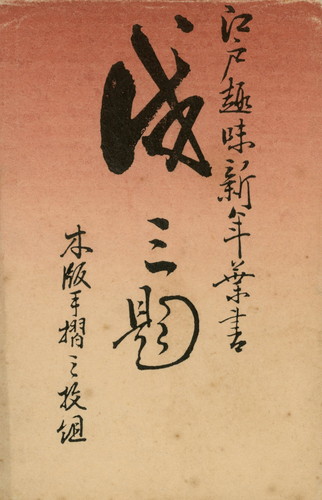 江戸趣味新年葉書
戌三題
木版手摺三枚組